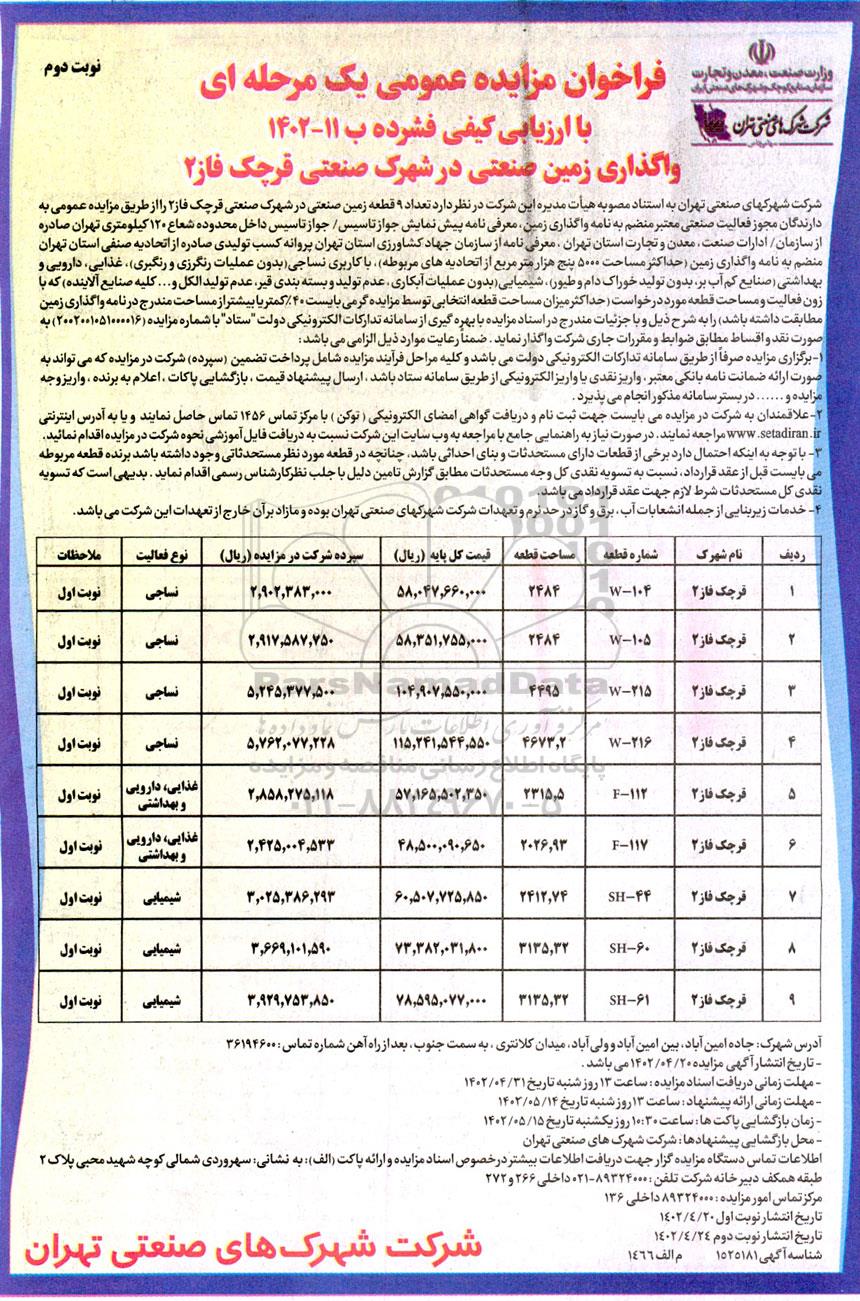 نوبت دوم
وزارت صنعت، معدن و تجارت
سازمان صنایع کوچک و شهرک‌های صنعتی ایران
شرکت شهرک های صنعتی تهران
فراخوان مزایده عمومی یک مرحله ای
با ارزیابی کیفی فشرده ب ۱۱-۱۴۰۲
واگذاری زمین صنعتی در شهرک صنعتی قرچک فاز۲
شرکت شهرکهای صنعتی تهران به استناد مصوبه هیأت مدیره این شرکت در نظر دارد تعداد ۹ قطعه زمین صنعتی در شهرک صنعتی قرچک فاز۲ را از طریق مزایده عمومی به
دارندگان مجوز فعالیت صنعتی معتبر منضم به نامه واگذاری زمین، معرفی نامه پیش نمایش جواز تاسیس/ جواز تاسیس داخل محدوده شعاع ۱۲۰ کیلومتری تهران صادره
از سازمان/ ادارات صنعت، معدن و تجارت استان تهران ، معرفی نامه از سازمان جهاد کشاورزی استان تهران پروانه کسب تولیدی صادره از اتحادیه صنفی استان تهران
منضم به نامه واگذاری زمین (حداکثر مساحت ۵۰۰۰ پنج هزار متر مربع از اتحادیه های مربوطه) ، با کاربری نساجی(بدون عملیات رنگرزی و رنگبری)، غذایی، دارویی و
بهداشتی (صنایع کم آب بر، بدون تولید خوراک دام و طیور) ، شیمیایی(بدون عملیات آبکاری ، عدم تولید و بسته بندی قیر، عدم تولید الکل و... کلیه صنایع آلاینده) که با
زون فعالیت و مساحت قطعه مورد درخواست (حداکثر میزان مساحت قطعه انتخابی توسط مزایده گر می بایست ۴۰٪ کمتر یا بیشتر از مساحت مندرج در نامه واگذاری زمین
مطابقت داشته باشد) را به شرح ذیل و با جزئیات مندرج در اسناد مزایده با بهره گیری از سامانه تدارکات الکترونیکی دولت "ستاد" با شماره مزایده (۲۰۰۲۰۰۱۰۵۱۰۰۰۰۱۶) به
صورت نقد و اقساط مطابق ضوابط و مقررات جاری شرکت واگذار نماید . ضمناً رعایت موارد ذیل الزامی می باشد:
۱-برگزاری مزایده صرفاً از طریق سامانه تدارکات الکترونیکی دولت می باشد و کلیه مراحل فرآیند مزایده شامل پرداخت تضمین (سپرده) شرکت در مزایده که می تواند به
صورت ارائه ضمانت نامه بانکی معتبر ، واریز نقدی یا واریز الکترونیکی از طریق سامانه ستاد باشد ، ارسال پیشنهاد قیمت ، بازگشایی پاکات ، اعلام به برنده ، واریز وجه
مزایده و ...... در بستر سامانه مذکور انجام می پذیرد .
۲-علاقمندان به شرکت در مزایده می بایست جهت ثبت نام و دریافت گواهی امضای الکترونیکی ( توکن ) با مرکز تماس ۱۴۵۶ تماس حاصل نمایند و یا به آدرس اینترنتی
www.setadiran.ir مراجعه نمایند. در صورت نیاز به راهنمایی جامع با مراجعه به وب سایت این شرکت نسبت به دریافت فایل آموزشی نحوه شرکت در مزایده اقدام نمائید.
۳- با توجه به اینکه احتمال دارد برخی از قطعات دارای مستحدثات و بنای احداثی باشد، چنانچه در قطعه مورد نظر مستحدثاتی وجود داشته باشد برنده قطعه مربوطه
می بایست قبل از عقد قرارداد، نسبت به تسویه نقدی کل وجه مستحدثات مطابق گزارش تامین دلیل با جلب نظر کارشناس رسمی اقدام نماید . بدیهی است که تسویه
نقدی کل مستحدثات شرط لازم جهت عقد قرارداد می باشد.
۴- خدمات زیربنایی از جمله انشعابات آب، برق و گاز در حد نرم و تعهدات شرکت شهرکهای صنعتی تهران بوده و مازاد بر آن خارج از تعهدات این شرکت می باشد.
ردیف نام شهرک شماره قطعه مساحت قطعه قیمت کل پایه (ریال) سپرده شرکت در مزایده (ریال) نوع فعالیت ملاحظات
۱ قرچک فاز۲ W-۱۰۴ ۲۴۸۴ ۵۸,۰۴۷,۶۶۰,۰۰۰ ۲,۹۰۲,۳۸۳,۰۰۰ نساجی نوبت اول
۲ قرچک فاز۲ W-۱۰۵ ۲۴۸۴ ۵۸,۳۵۱,۷۵۵,۰۰۰ ۲,۹۱۷,۵۸۷,۷۵۰ نساجی نوبت اول
۳ قرچک فاز۲ W-۲۱۵ ۴۴۹۵ ۱۰۴,۹۰۷,۵۵۰,۰۰۰ ۵,۲۴۵,۳۷۷,۵۰۰ نساجی نوبت اول
۴ قرچک فاز۲ W-۲۱۶ ۴۶۷۳,۲ ۱۱۵,۲۴۱,۵۴۴,۵۵۰ ۵,۷۶۲,۰۷۷,۲۲۸ نساجی نوبت اول
۵ قرچک فاز۲ F-۱۱۲ ۲۳۱۵,۵ ۵۷,۱۶۵,۵۰۲,۳۵۰ ۲,۸۵۸,۲۷۵,۱۱۸ غذایی، دارویی و بهداشتی نوبت اول
۶ قرچک فاز۲ F-۱۱۷ ۲۰۲۶,۹۳ ۴۸,۵۰۰,۰۹۰,۶۵۰ ۲,۴۲۵,۰۰۴,۵۳۳ غذایی، دارویی و بهداشتی نوبت اول
۷ قرچک فاز۲ SH-۴۴ ۲۴۱۲,۷۴ ۶۰,۵۰۷,۷۲۵,۸۵۰ ۳,۰۲۵,۳۸۶,۲۹۳ شیمیایی نوبت اول
۸ قرچک فاز۲ SH-۶۰ ۳۱۳۵,۳۲ ۷۳,۳۸۲,۰۳۱,۸۰۰ ۳,۶۶۹,۱۰۱,۵۹۰ شیمیایی نوبت اول
۹ قرچک فاز۲ SH-۶۱ ۳۱۳۵,۳۲ ۷۸,۵۹۵,۰۷۷,۰۰۰ ۳,۹۲۹,۷۵۳,۸۵۰ شیمیایی نوبت اول
ParsNamadData
مرکز فرآوری اطلاعات پارس نماد داده ها
پایگاه اطلاع رسانی مناقصه و مزایده
۰۲۱-۸۸۳۴۹۶۷۰-۵
آدرس شهرک: جاده امین آباد، بین امین آباد و ولی آباد، میدان کلانتری ، به سمت جنوب، بعد از راه آهن شماره تماس: ۳۶۱۹۴۶۰۰
- تاریخ انتشار آگهی مزایده ۱۴۰۲/۰۴/۲۰ می باشد .
- مهلت زمانی دریافت اسناد مزایده : ساعت ۱۳ روز شنبه تاریخ ۱۴۰۲/۰۴/۳۱
- مهلت زمانی ارائه پیشنهاد : ساعت ۱۳ روز شنبه تاریخ ۱۴۰۲/۰۵/۱۴
- زمان بازگشایی پاکت ها : ساعت ۱۰:۳۰ روز یکشنبه تاریخ ۱۴۰۲/۰۵/۱۵
- محل بازگشایی پیشنهادها : شرکت شهرک های صنعتی تهران
اطلاعات تماس دستگاه مزایده گزار جهت دریافت اطلاعات بیشتر درخصوص اسناد مزایده و ارائه پاکت (الف): به نشانی: سهروردی شمالی کوچه شهید محبی پلاک ۲
طبقه همکف دبیرخانه شرکت تلفن: ۸۹۳۲۴۰۰۰-۰۲۱ داخلی ۲۶۶ و ۲۷۲
مرکز تماس امور مزایده : ۸۹۳۲۴۰۰۰ داخلی ۱۳۶
تاریخ انتشار نوبت اول ۱۴۰۲/۴/۲۰
تاریخ انتشار نوبت دوم ۱۴۰۲/۴/۲۴
شناسه آگهی ۱۵۲۵۱۸۱ م الف ۱۴۶۶
شرکت شهرک‌های صنعتی تهران